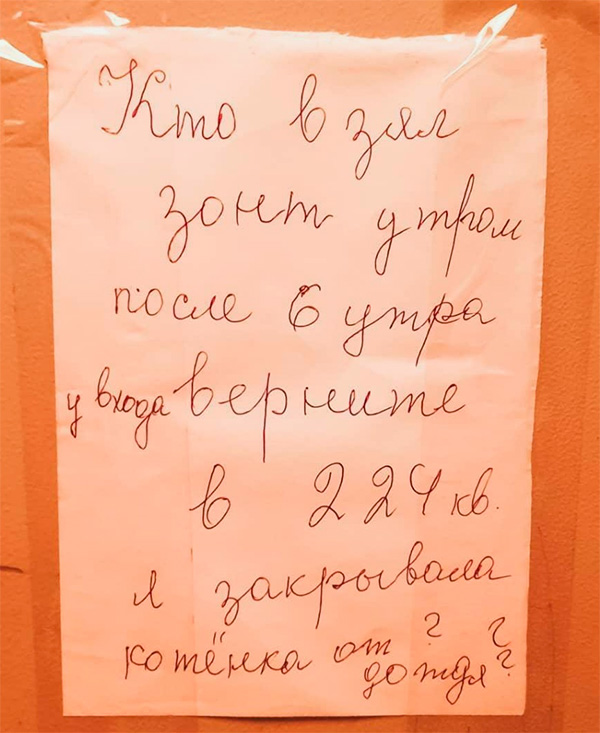 Кто взял
зонт утром
после 6 утра
у входа верните
в 224 кв.
я закрывала
котёнка от дождя ???